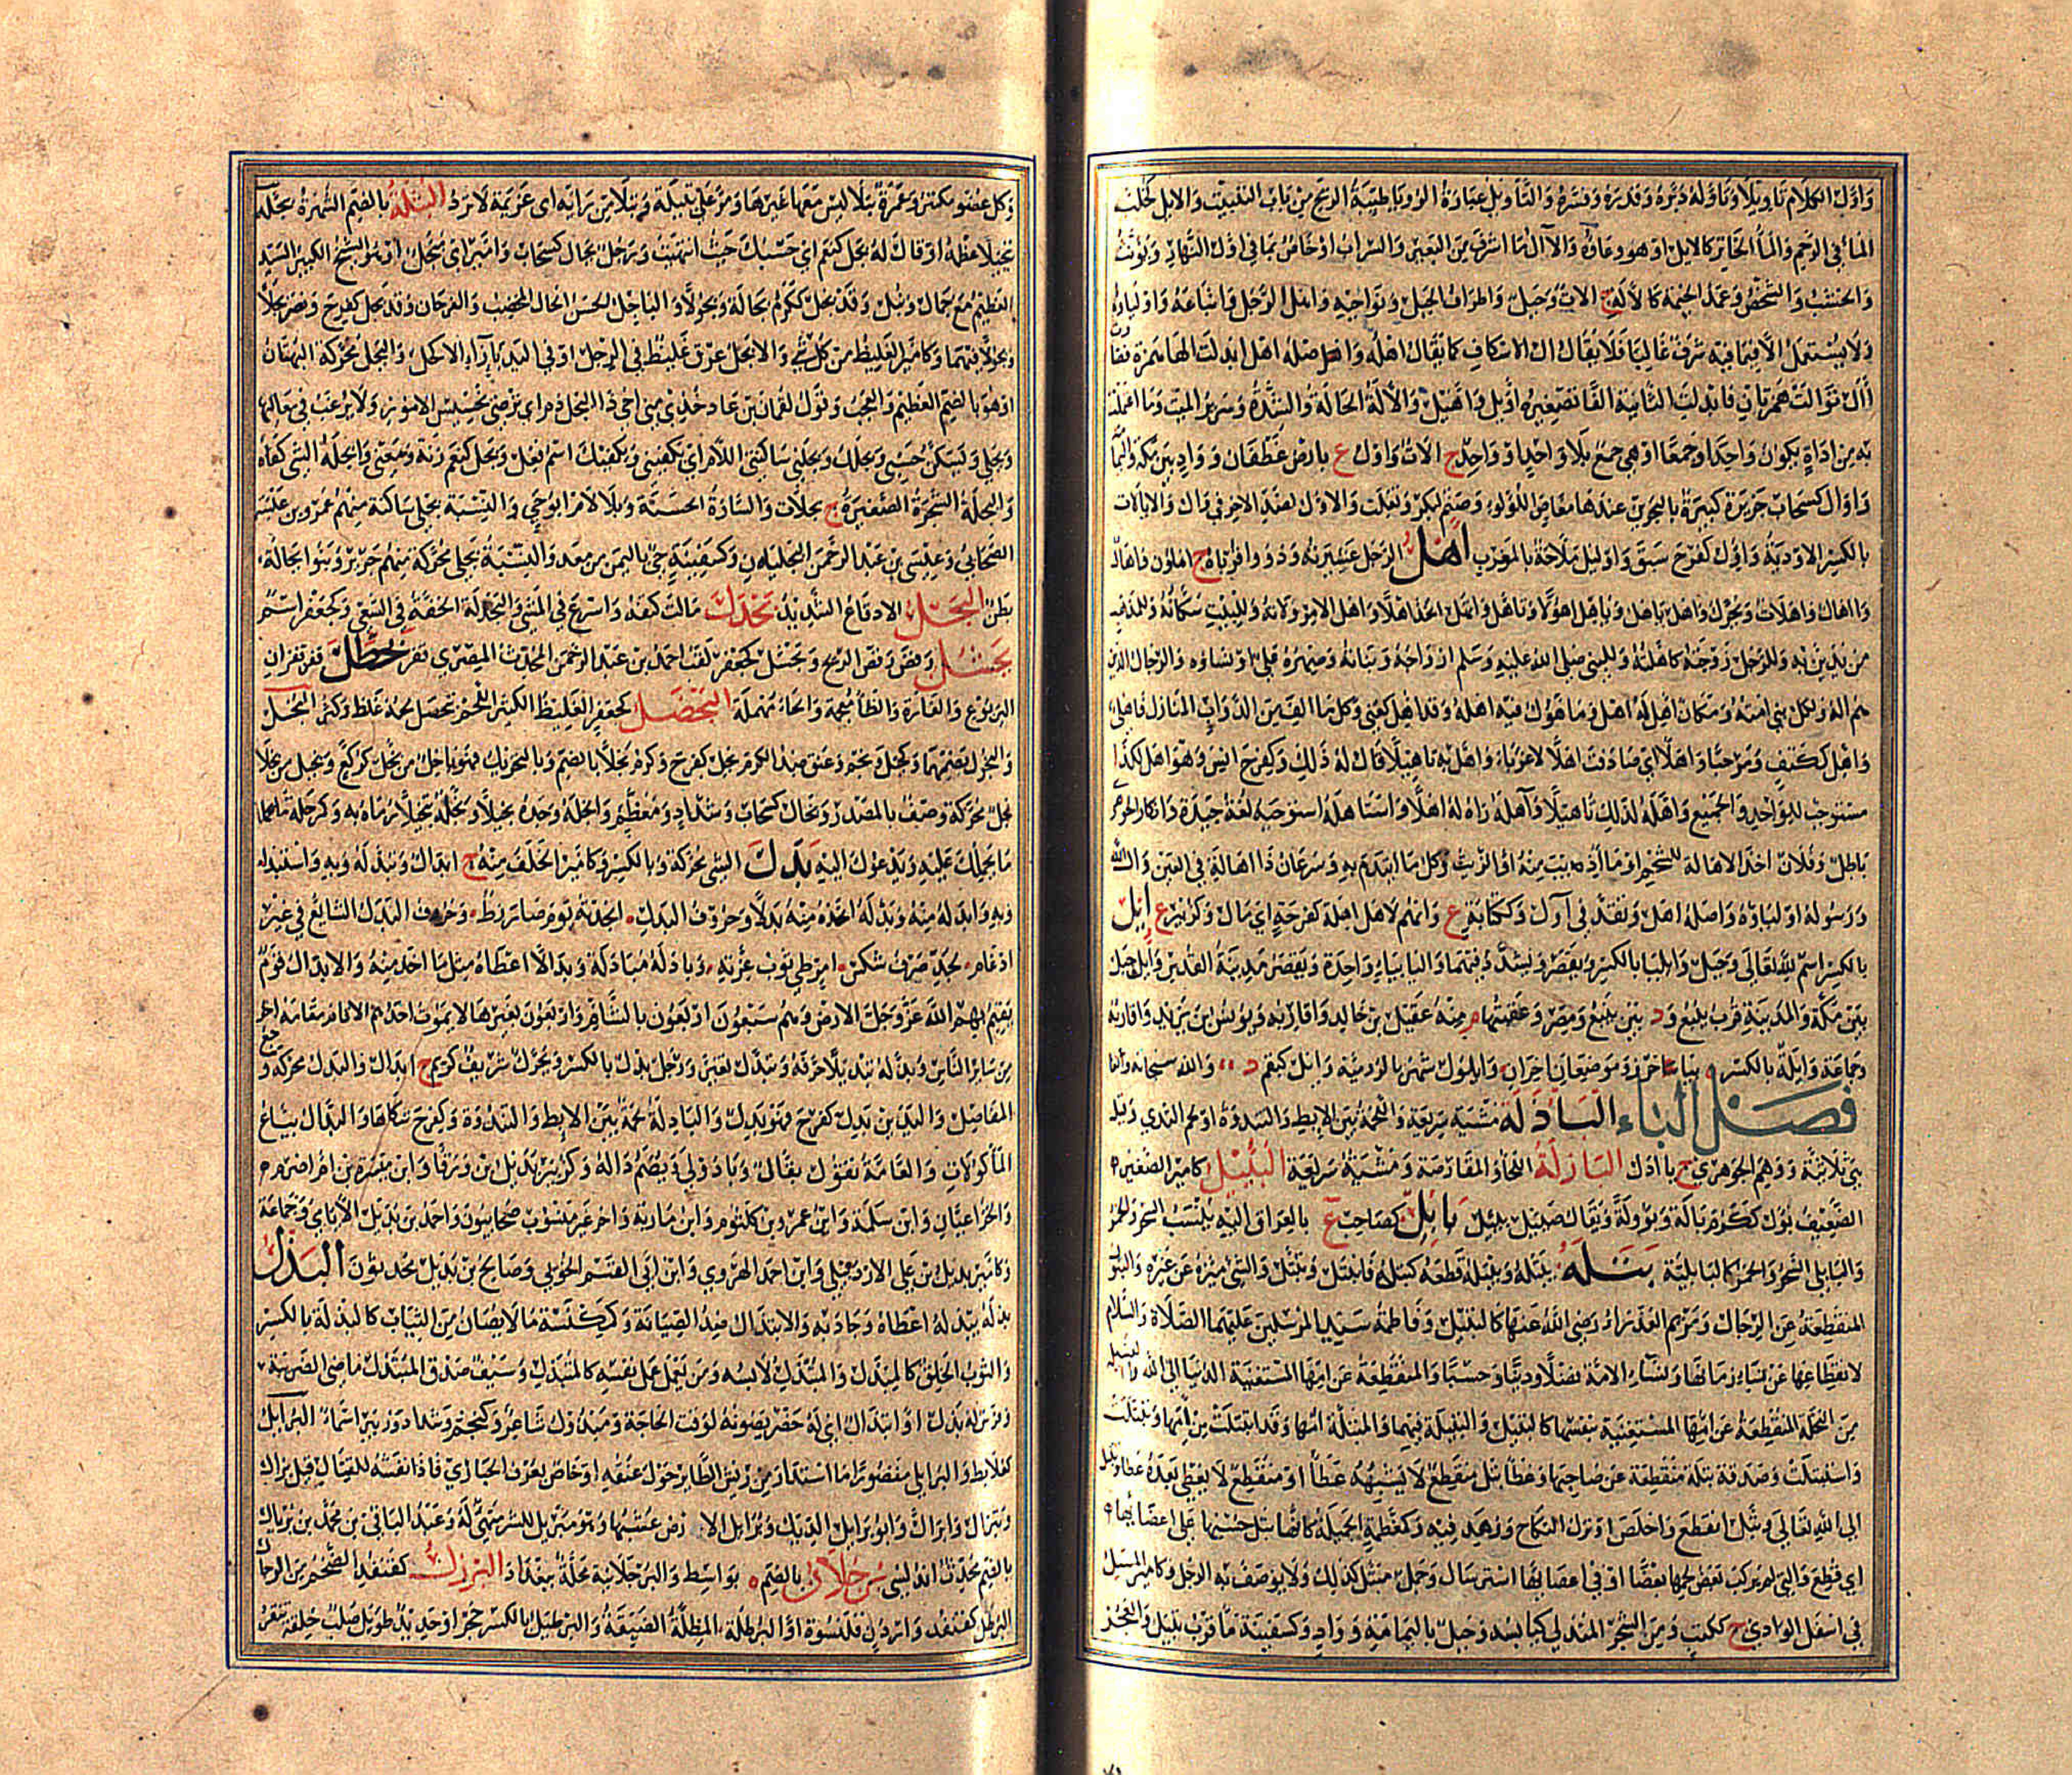 وَأوَّلَ الكلامَ تأويلاً وتَأَوَّلَهُ دَبَّرَهُ وقَدَّرَهُ وفَسَّرَهُ والتأويلُ عبارَةُ الرؤيا وبقلة طيبة الريح من باب التنبيت والأيل كخلب
الماء في الرحم والماء الخاثر كالايل او هو وعاؤه والآل ما اشرف من البعير والسراب او خاص بما في اول النهار ويؤنث
والخشب والشخص وعمد الخيمة كالآلة ج آلات وجبل واطراف الجبل ونواحيه واهل الرجل واتباعه واولياؤه
ولا يستعمل الا فيما فيه شرف غالبا فلا يقال آل الاسكاف كما يقال اهله واصله اهل ابدلت الهاء همزة فصارت
أأل توالت همزتان فابدلت الثانية الفا تصغيره اويل واهيل والآلة الحالة والشدة وسرير الميت وما اعتملت
به من اداة يكون واحدا وجمعا او هي جمع بلا واحد او واحد ج آلات واول ع بارض غطفان وواد بين مكة واليمامة
واوال كسحاب جزيرة كبيرة بالبحرين عندها مغاص اللؤلؤ وصنم لبكر وتغلب والاول لضد الآخر في وأل والايالات
بالكسر الاودية واول كفرح سبق واوليل ملاحة بالمغرب أهل الرجل عشيرته وذوو قرباه ج اهلون واهال
وآهال واهلات ويحرك واهل ياهل وياهل اهولا وتاهل واتهل اتخذ اهلا واهل الامر ولاته وللبيت سكانه وللمذهب
من يدين به وللرجل زوجته كاهلته وللنبي صلى الله عليه وسلم ازواجه وبناته وصهره علي او نساؤه والرجال الذين
هم آله ولكل نبي امته ومكان آهل له اهل وماهول فيه اهله وقد اهل كعني وكل ما الف من الدواب المنازل فاهلي
واهل ككتف ومرحبا واهلا اي صادفت اهلا لا غرباء واهل به تاهيلا قال له ذلك وكفرح انس وهو اهل لكذا
مستوجب للواحد والجميع واهله لذلك تاهيلا وآهله رآه له اهلا واستاهله استوجبه لغة جيدة وانكار الجوهري
باطل وفلان اخذ الاهالة للشحم او ما اذيب منه او الزيت وكل ما ائتدم به وسرعان ذا اهالة في العين وآل الله
ورسوله اولياؤه واصله اهل وتقدم في أول وككتابة ع وانهم لاهل اهلة كفرحة اي مال وكزبير ع إيل
بالكسر اسم الله تعالى وجبل وايليا بالكسر ويقصر ويشدد فيهما واليا بياء واحدة ويقصر مدينة القدس وايل جبل
بين مكة والمدينة قرب ينبع ود بين ينبع ومصر وعقبتها م منه عقيل بن خالد واقاربه ويونس بن يزيد واقاربه
وجماعة وايلة بالكسر ة بباخرز وموضعان آخران وايلول شهر بالرومية وايل كبقم د والله سبحانه وتعالى
فصل الباء البأدلة مشية سريعة واللحمة بين الابط والثندوة او لحم الثدي وقيل
هي ثلاثية ووهم الجوهري ج بآدل البأزلة اللحاء والمقارصة ومشية سريعة البئيل كامير الصغير
الضعيف بؤل ككرم بآلة وبؤولة ويقال ضئيل بئيل بابل كصاحب ع بالعراق اليه ينسب السحر والخمر
والبابلي السحر والخمر كالبابلية بتله يبتله ويبتله قطعه كبتله فانبتل وتبتل والشيء ميزه عن غيره والبتول
المنقطعة عن الرجال ومريم العذراء رضي الله عنها كالبتيل وفاطمة بنت سيد المرسلين عليهما الصلاة والسلام
لانقطاعها عن نساء زمانها ونساء الامة فضلا ودينا وحسبا والمنقطعة عن الدنيا الى الله والفسيلة
من النخلة المنقطعة عن امها المستغنية بنفسها كالبتيل والبتيلة فيهما والمبتلة امها وقد انبتلت من امها وتبتلت
واستبتلت وصدقة بتلة منقطعة عن صاحبها وعطاء بتل منقطع لا يشبهه عطاء او منقطع لا يعطى بعده عطاء وتبتل
الى الله تعالى وبتل انقطع واخلص او ترك النكاح وزهد فيه وكمعظمة الجميلة كانها بتل حسنها على اعضائها
اي قطع والتي لم يركب بعض لحمها بعضا او في اعضائها استرسال وجمل مبتل كذلك ولا يوصف به الرجل وكامير المسيل
في اسفل الوادي ج ككتب ومن الشجر المتدلي كبائسه وجبل باليمامة وواد وكسفينة ماء قرب بتيل والعجز
وكل عضو مكتنز وعمرة بتلاء ليس معها غيرها ومر على بتيلة وبتلاء من رايه اي عزيمة لا ترد البثلة بالضم الشهرة بجله
تبجيلا عظمه او قال له بجل كنعم اي حسبك حيث انتهيت ورجل بجال كسحاب وامير اي مبجل او هو الشيخ الكبير السيد
العظيم مع جمال ونبل وقد بجل ككرم بجالة وبجولا والباجل الحسن الحال المخصب والفرحان وقد بجل كفرح ونصر بجلا
وبجولا فيهما وكامير الغليظ من كل شيء والابجل عرق غليظ في الرجل او في اليد بازاء الاكحل والبجل محركة البهتان
او هو بالضم العظيم والعجب وقول لقمان بن عاد خذي مني اخي ذا البجل ذم اي يرضى بخسيس الامور ولا يرغب في معاليها
وبجلي ويسكن حسبي وبجلك وبجلني ساكنتي اللام اي يكفيني ويكفيك اسم فعل وبجل كنعم زنة ومعنى وابجله الشيء كفاه
والبجلة الشجرة الصغيرة ج بجلات والشارة الحسنة وبلا لام ابو حي والنسبة بجلي ساكنة منهم عمرو بن عبسة
الصحابي وعيسى بن عبد الرحمن البجليان وكسفينة حي باليمن من معد والنسبة بجلي محركة منهم جرير وبنو بجالة
بطن البحل الادقاع الشديد بحدل مالت كتفه واسرع في المشي والبحدلة الخفة في السعي وكجعفر اسم
بحشل رقص رقص الزنج وبحشل كجعفر لقب احمد بن عبد الرحمن المحدث المصري بحظل قفز قفزان
اليربوع والفارة والظاء معجمة والحاء مهملة البخضل كجعفر الغليظ الكثير اللحم تبخضل لحمه غلظ وكثر البخل
والبخول بضمهما وكجبل ونجم وعنق ضد الكرم بخل كفرح وكرم بخلا بالضم وبالتحريك فهو باخل من بخل كركع وبخيل من بخلاء
بخل محركة وصف بالمصدر وبخال كسحاب وشداد ومعظم وابخله وجده بخيلا وبخله تبخيلا رماه به وكمرحلة ما يحملك
ما يحملك عليه ويدعوك اليه بدل الشيء محركة وبالكسر وكامير الخلف منه ج ابدال وتبدله وبه واستبدله
وبه وابدله منه وبدله اتخذه منه بدلا وحروف البدل انجدته يوم صال زط وحروف البدل الشائع في غير
ادغام بجد صرف شكس آمن طي ثوب عزته وبادله مبادلة وبدالا اعطاه مثل ما اخذ منه والابدال قوم
يقيم بهم الله عز وجل الارض وهم سبعون اربعون بالشام وثلاثون بغيرها لا يموت احدهم الا قام مقامه آخر
من سائر الناس وبدله تبديلا حرفه وتبدل تغير ورجل بدل بالكسر ويحرك شريف كريم ج ابدال والبدل محركة وجع
المفاصل واليدين بدل كفرح فهو بدل والبادلة لحمة بين الابط والثندوة وكفرح شكاها والبدال بياع
الماكولات والعامة تقول بقال وبادولى ويضم داله ع وكزبير بديل بن ورقاء وابن ميسرة بن ام اصرم
والخزاعيان وابن سلمة وابن عمرو بن كلثوم وابن مارية وآخر غير منسوب صحابيون واحمد بن بديل الايامي وجماعة
وكامير بديل بن علي الاردبيلي وابن احمد الهروي وابن ابي القسم الخويي وصالح بن بديل محدثون البذل م
بذله يبذله اعطاه وجاد به والابتذال ضد الصيانة وككنسة ما لا يصان من الثياب كالبذلة بالكسر
والثوب الخلق كالمبذل والمبتذل لابسه ومن يعمل عمل نفسه كالمتبذل وسيف صدق المبتذل ماضي الضريبة
وفرس له بذل او ابتذال اي له حضر يصونه لوقت الحاجة ومبذول شاعر وكنجم وشداد وزبير اسماء البرائل
كعلابط والبرائلى مقصورا ما استدار من ريش الطائر حول عنقه او خاص بعرف الحبارى فاذا نفشه للقتال قيل برأل
وتبرأل وابرأل وابو برائل الديك وبرائل الارض عشبها وهو مبرئل للشر متهيئ له وعبد الباقي بن محمد بن بريال
بالضم محدث اندلسي برجلان بالضم ة بواسط والبرجلانية محلة ببغداد البرزل كقنفذ الضخم من الرجال
البرطل كقنفذ واردن قلنسوة او البرطلة المظلة الضيقة والبرطيل بالكسر حجر او حديد طويل صلب خلقة ينقر